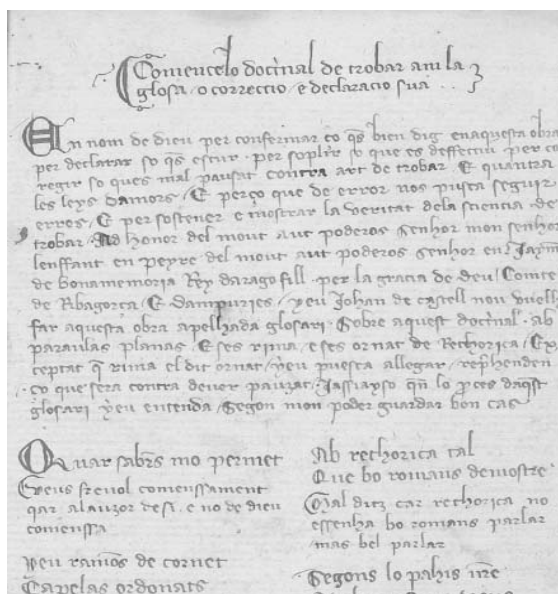 Comencelo doctrinal de trobar am la
glosa, o correctio, e declaracio sua
En nom de dieu per confermar ço qes bien dig en aquesta obra
per declarar so qes escur. per soplir so que es deffectiu per co
regir so ques mal pausat contra art de trobar. E quantra
les leys damors, E perço que de error nos pusca seguir
errors, E per sostener e mostrar la veritat dela sciencia de
trobar. Ad honor del mout aut poderos senhor mon senhor
lenffant en peyre del mout aut poderos senhor en Jaym
de bonamemoria Rey darago fill. per la gracia de deu, Comte
de Ribagorça, E dampuries, yeu Johan de castell nou vuelh
far aquesta obra apellada glosari. Sobre aquest doctrinal. ab
paraulas planas. E ses rima, e ses ornat de Rethorica, Ex
ceptat q rima el dit ornat, yeu puesca allegar, rephenden
ço que sera contra dever pauzat. Jassiayso qn lo pces daqst
glosari yeu entenda, Segon mon poder guardar bon cas
Quar sabers mo permet
Greus frevol comenssament
qar alauzor de si. e no de dieu
comenssa
yeu ramons de cornet
Capelas ordonats
Ab rethorica tal
Que bo romans demostre
Mal ditz car rethorica no
essenha bo romans parlar
mas bel parlar
Segons lo pahis nre